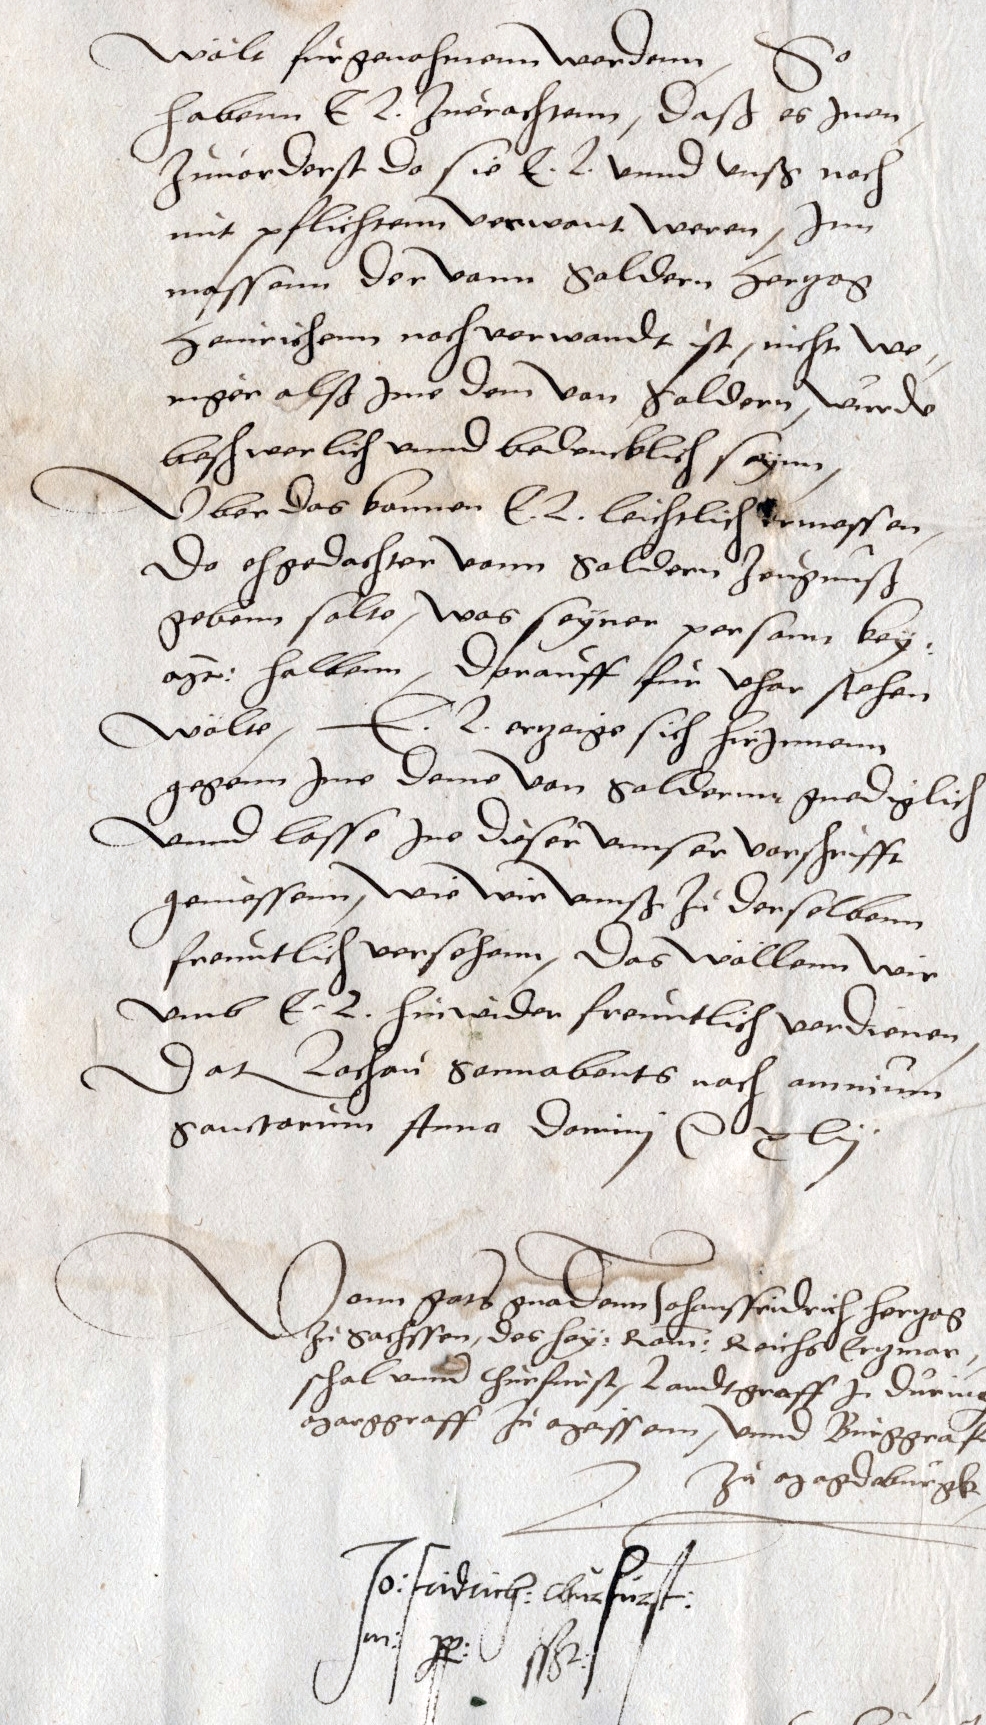 wolt furgenohmenn werdenn, So
habenn E L. Zuerachtenn, das es Inen,
Zuuorderst do sie E. L. vnnd vnß noch
mit pflichtenn verwant weren, Inn
massenn der vonn Saldern Hertzog
Heinrichenn noch verwandt ist, nicht we,,
niger alß Ime dem von Saldern, wurde
beschwerlich vnnd bedencklich seynn,
Vber das konnen E. L. leichtlich ermessen,
Do ehgedachter vonn Saldern Zeugnuß
gebenn solte, was seyner personn key:
Mt: halbenn, Dorauff fur vhar stehen
wolte, E. L. ertzeige sich hirInnenn
gegenn Ime deme von Saldernn gnediglich
vnnd lasse Ine dieser vnnser vorschrifft
geniessenn, wie wir vnnß zu derselbenn
freuntlich versehenn, Das wollenn wir
vmb E. L. hinwider freuntlich verdienen,
Dat Lochau Sonnabents nach omnium
Sanctorum Anno Domini xlij
Vonn gots gnadenn Johanssfridrich hertzog
zu Sachssen, des hey: Rom: Reichs Ertzmar,,
schal vnnd Churfurst, Landtgraff In During
Marggraff zu Meissenn, vnnd Burggraff
zu Magdeburgk
Jo: fridrich: churfurst:
m: pp: sszt: